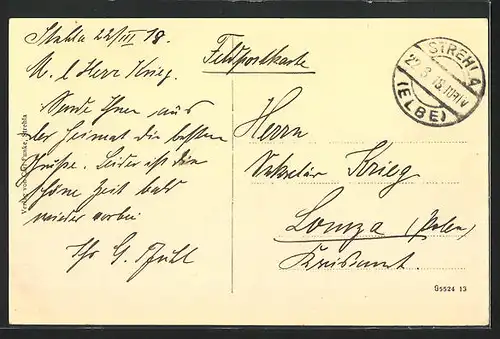 Strehla 22/III 18.
M. l. Herr Krieg.
Sende Ihnen aus
der Heimat die besten
Grüße. Leider ist die
schöne Zeit bald
wieder vorbei
Ihr G.
Feldpostkarte
STREHLA
22.3.18.
(ELBE)
Herrn
Sekretär Krieg
Lomza (Polen)
Kreisamt.
Strehla
G5524 13